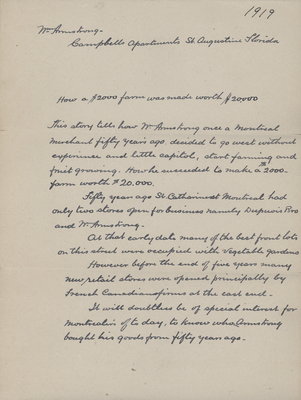 1919
Wm Armstrong-
Campbells Apartments St Augustine Florida
How a $2000 farm was made worth $20000
This story tells how Wm Armstrong once a Montreal
merchant fifty years ago, decided to go west without
experience and little capital, start farming and
fruit growing. How he succeeded to make a $2000.
farm worth $20,000.
Fifty year ago St Catharines St Montreal had
only two stores open for business namely Dupuis Bro
and Wm Armstrong-
At that early date many of the best front lots
on this street were occupied with vegetable gardens
However before the end of five years many
new retail stores were opened principally by
French Canadians firms at the east end-
It will doubtless be of special interest for
Montrealers of to day, to know who Armstrong
bought his goods from fifty years ago-